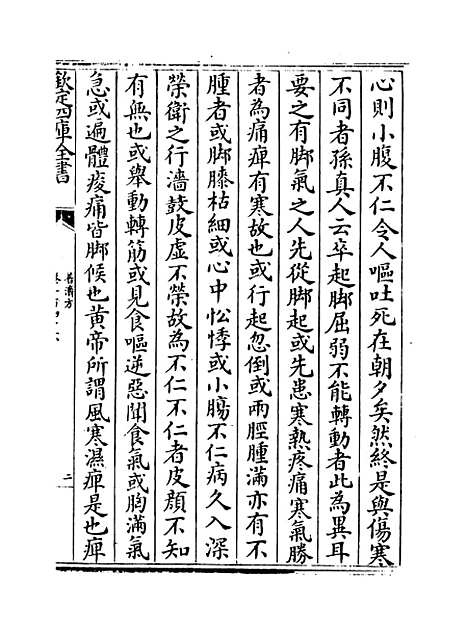 心則小腹不仁令人嘔吐死在朝夕矣然終是與傷寒
不同者孫真人云卒起脚屈弱不能轉動者此為異耳
要之有脚氣之人先從脚起或先患寒熱疼痛寒氣勝
者為痛痺有寒故也或行起忽倒或兩脛腫滿亦有不
腫者或脚膝枯細或心中忪悸或小腸不仁病久入深
榮衛之行濇皷皮虛不榮故為不仁不仁者皮頑不知
有無也或舉動轉筋或見食嘔逆惡聞食氣或胸滿氣
急或遍體痠痛皆脚候也黄帝所謂風寒濕痺是也痺
欽定四庫全書
普濟方
二